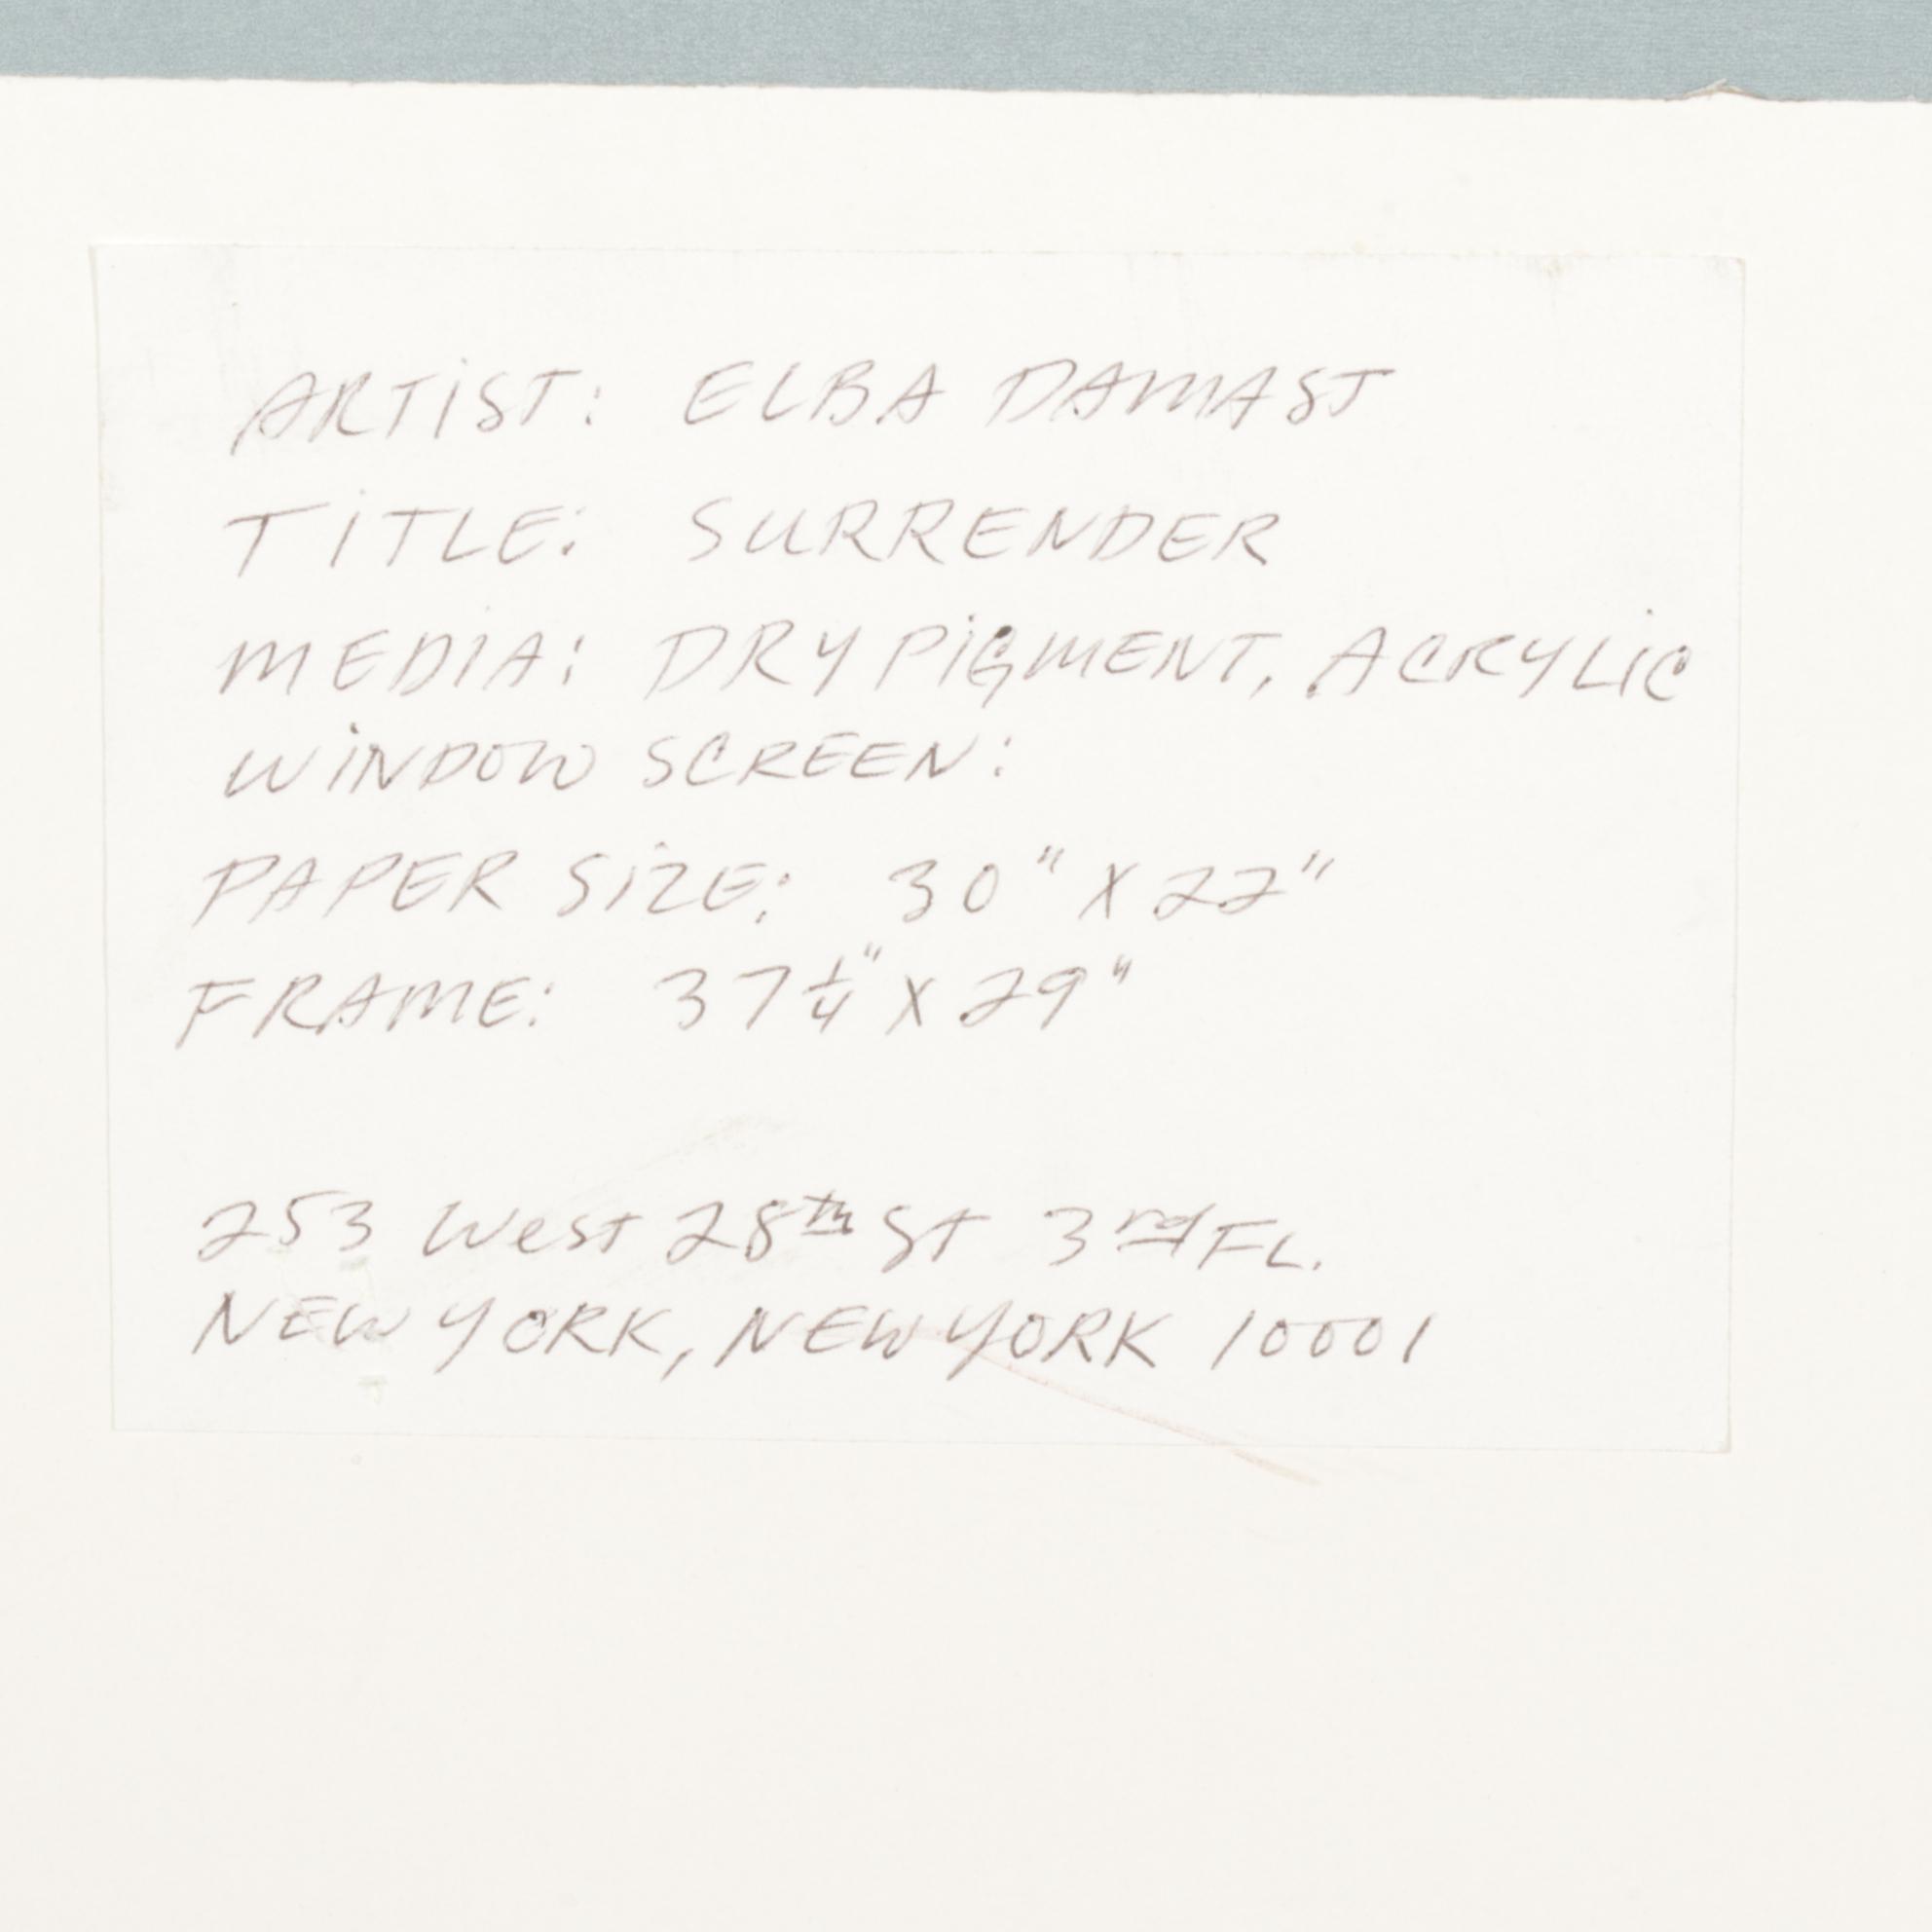 ARTIST: ELBA DAMAST
TITLE: SURRENDER
MEDIA: DRY PIGMENT, ACRYLIC
WINDOW SCREEN:
PAPER SIZE: 30" X 22"
FRAME: 37 1/4" X 29"
253 West 28th St 3rd FL.
NEW YORK, NEW YORK 10001